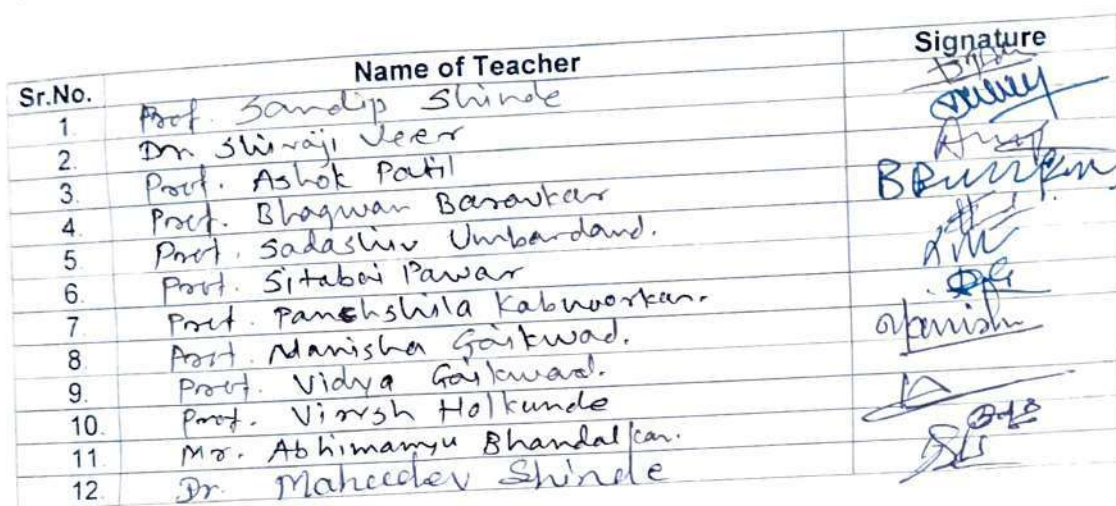 Sr.No. Name of Teacher Signature
1. Prof. Sandip Shinde
2. Dr. Shivaji Veer
3. Prof. Ashok Patil
4. Prof. Bhagwan Baravkar
5. Prof. Sadashiv Umbardand.
6. Prof. Sitabai Pawar
7. Prof. Panchshila Kabnoorkar.
8. Prof. Manisha Gaikwad. Manisha
9. Prof. Vidya Gaikwad.
10. Prof. Holkunde
11 Mr. Abhimanyu Bhandalkar.
12. Dr. Mahadev Shinde